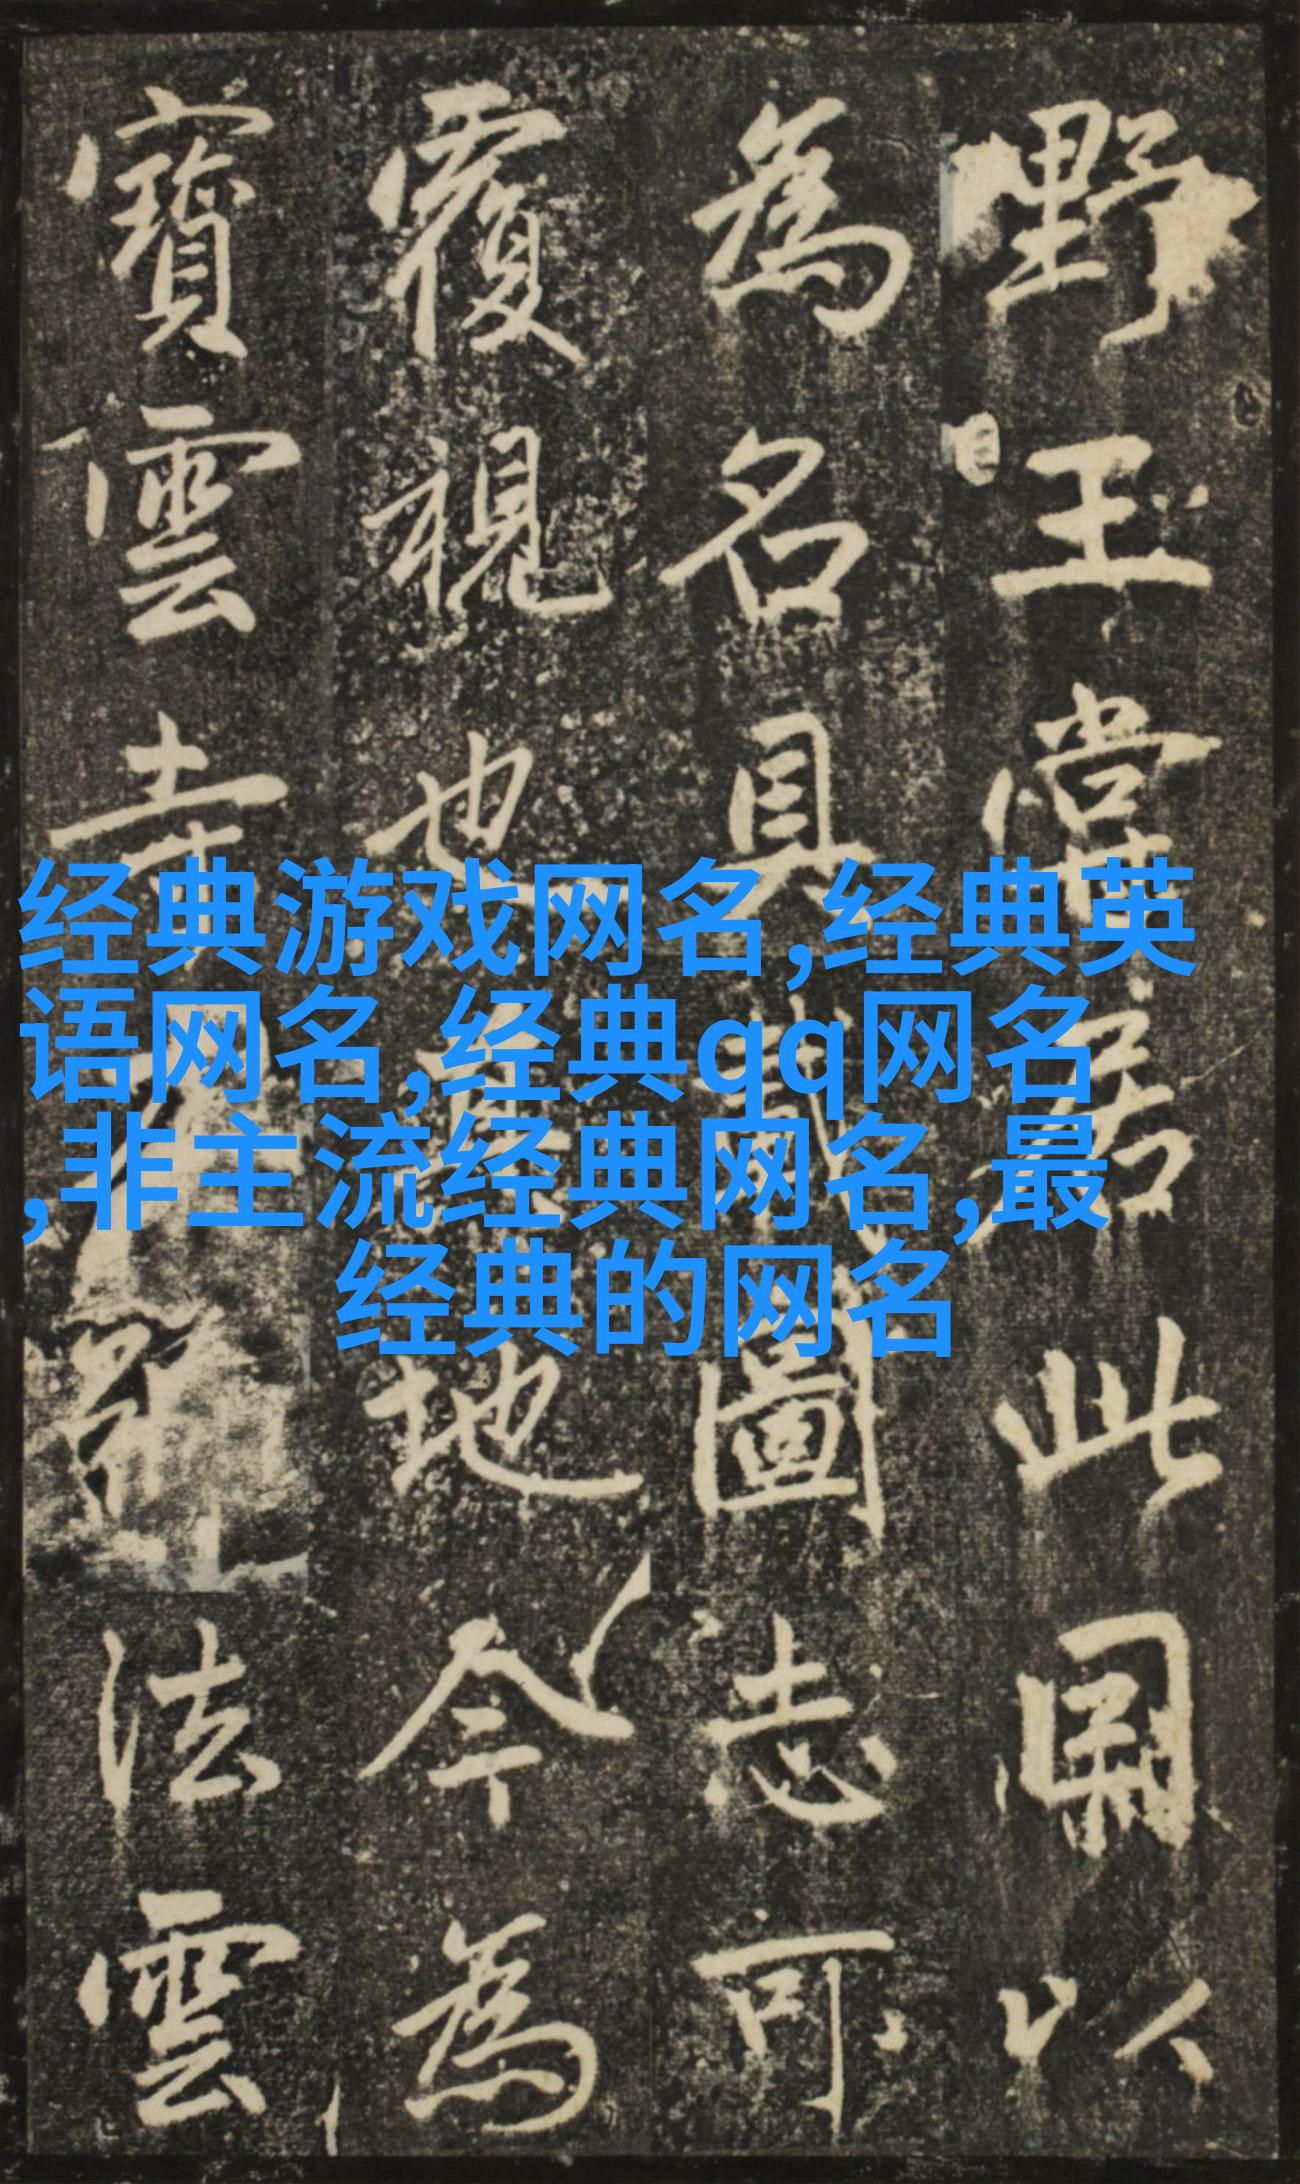 野王常居此以
為名具載圖志可
覆視也其地今為
寶雲寺法雲
经典游戏网名,经典英
语网名,经典qq网名
,非主流经典网名,最
经典的网名